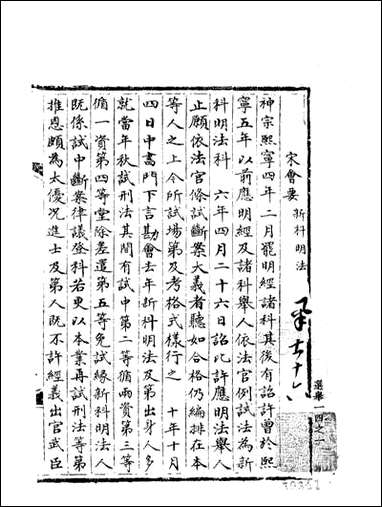 宋會要
新科明法
神宗熙寧四年二月罷明經諸科其後有詔許曾於熙
寧五年以前應明經及諸科舉人依法官例試法為新
科明法科　六年四月二十六日詔比許應明法舉人
止願依法官條試斷案大義者聽如合格仍編排在本
等人之上今所試場第及考格式樣行之　十年十月
四日中書門下言勘會去年新科明法及第出身人多
就當年秋試刑法其間有試中第二等循兩資第三等
循一資第四等堂除差遣第五等免試緣新科明法人
既係試中斷案律議登科若更以本業再試刑法等第
推恩頗為太優況進士及第人既不許經義出官武臣
選舉一四之一